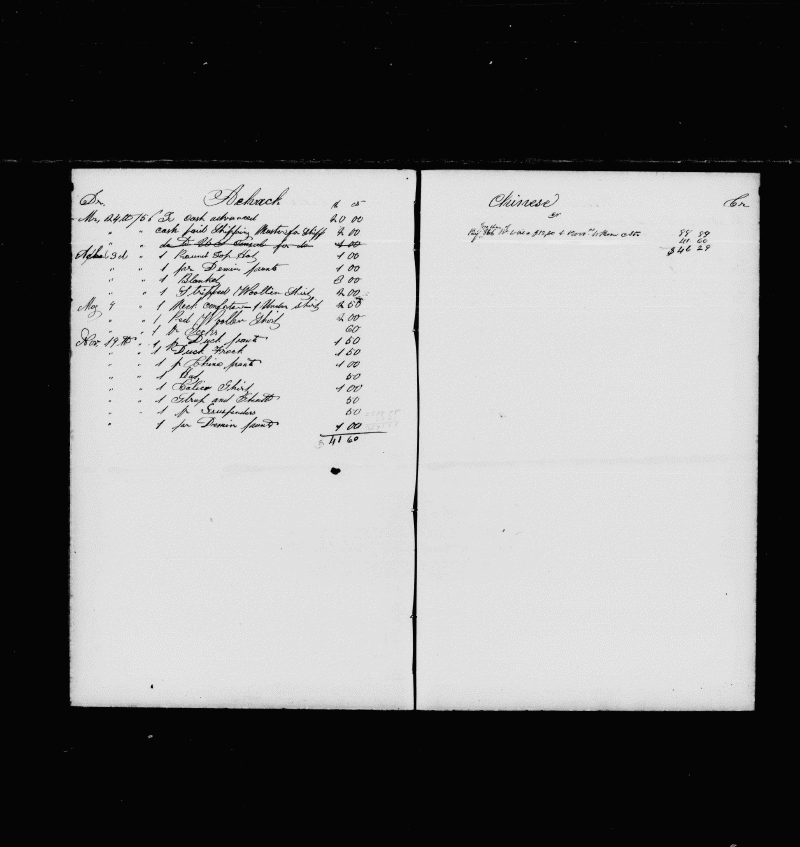 Dr. Achack $ cts
Mr, 24th /56 To cash advanced 20 00
" " " cash paid Shipping Master for Shipp 2 00
" " " 1 00
April 3d " 1 Round Top Hat 1 00
" " " 1 pr Demin pants 1 00
" " " 1 Blanket 3 00
" " " 1 Stripped Woollen Shirt 2 00
May 9 " 1 Neck comforter 1 Under shirt 2 50
" " 1 Red Woollen Shirt 2 00
" " " 1 pr Socks 60
Nov. 19th " 1 pr Duck pants 1 50
" " 1 Duck Frock 1 50
" " 1 pr China pants 1 00
" " 1 Hat 50
" " 1 Calico Shirt 1 00
" " 1 Strap and Sheath 50
" " 1 pr Suspenders 50
" 1 pr Demin pants 1 00
$ 41 60
Chinese Cr
By
41 60
$ 46 29